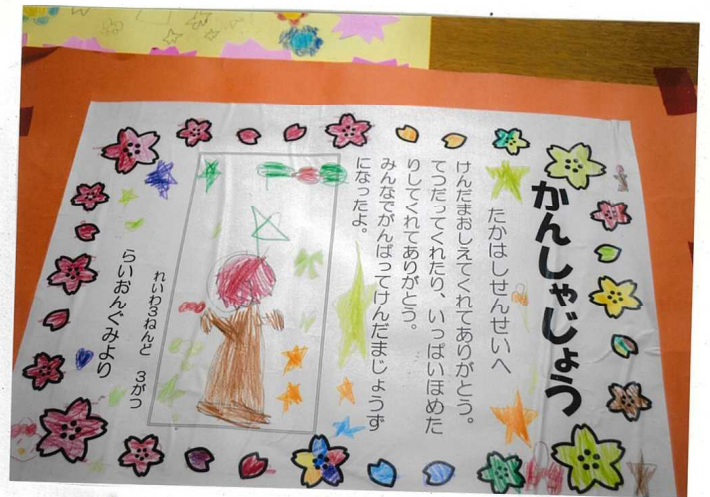 かんしゃじょう
たかはしせんせいへ
けんだまおしえてくれてありがとう。
てつだってくれたり、いっぱいほめた
りしてくれてありがとう。
みんなでがんばってけんだまじょうず
になったよ。
れいわ3ねんど　3がつ
らいおんぐみより